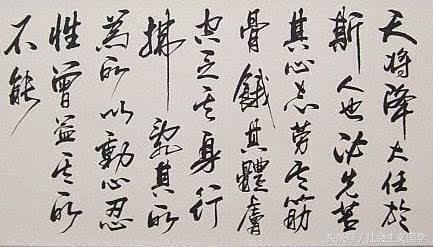 天将降大任於
斯人也必先苦
其心志劳其筋
骨餓其體膚
空乏其身行
拂亂其所
為所以動心忍
性曾益其所
不能
头条号 / 社会主义国学